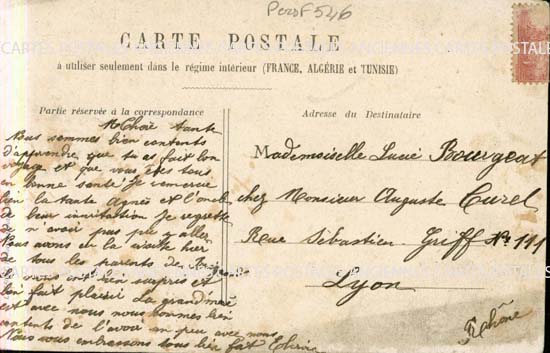 PoRDF546
CARTE POSTALE
à utiliser seulement dans le régime intérieur (FRANCE, ALGÉRIE et TUNISIE)
Partie réservée à la correspondance
Chère tante
Nous sommes bien contents
d'apprendre que tu as fait bon
voyage et que vous êtes tous
en bonne santé Je remercie
bien la tante Agnès et l'oncle
de leur invitation Je regrette
de n'avoir pas pu y aller
Nous avons eu la visite hier
de tous les parents de
ils nous ont bien surpris et
bien fait plaisir La grand'mère
est avec nous nous sommes bien
contents de l'avoir un peu avec nous
Nous vous embrassons tous bien fort
Adresse du Destinataire
Mademoiselle Lucie Bourgeat
chez Monsieur Auguste Curel
Rue Sébastien Griff No 111
Lyon
Rhône